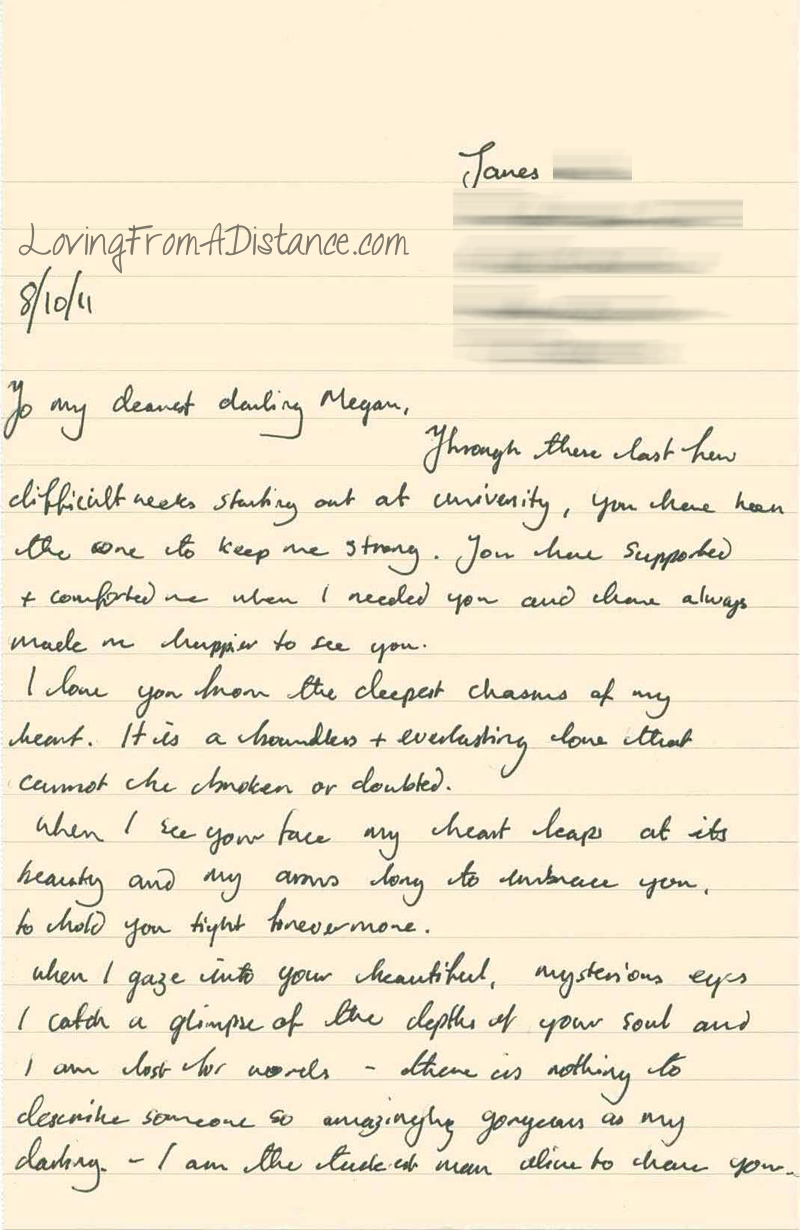 James
LovingFromADistance.com
8/10/11
To my dearest darling Megan,
Through these last few
difficult weeks starting out at university, you have been
the one to keep me strong. You have supported
+ comforted me when I needed you and have always
made me happier to see you.
I love you from the deepest chasms of my
heart. It is a boundless + everlasting love that
cannot be broken or doubted.
When I see your face my heart leaps at its
beauty and my arms long to embrace you,
to hold you tight forevermore.
When I gaze into your beautiful, mysterious eyes
I catch a glimpse of the depths of your soul and
I am lost for words - there is nothing to
describe someone so amazingly gorgeous as my
darling. - I am the luckiest man alive to have you.